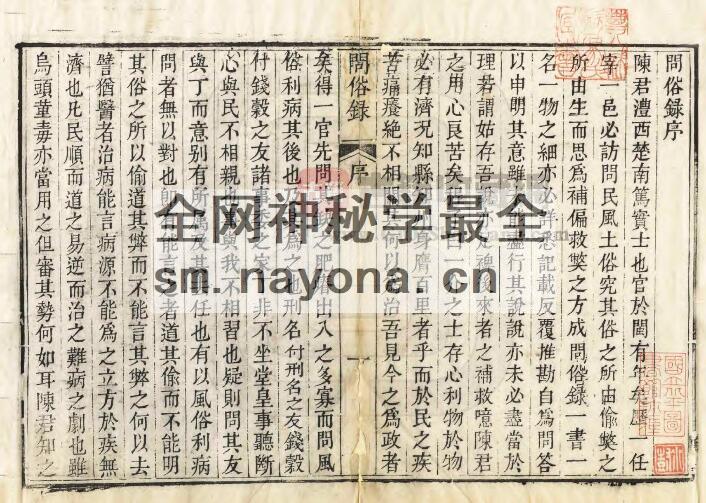 問俗錄序
陳君澧西楚南篤實士也官於閩有年矣歷一任
宰一邑必訪問民風土俗究其俗之所由偷獘之
所由生而思為補偏救獘之方成問俗錄一書一
名一物之細亦必詳悉記載反覆推勘自為問答
以申明其意雖 盡行其說說亦未必盡當於
理若謂姑存吾 禆後來者之補救噫陳君
之用心良苦矣 曰一介之士存心利物於物
必有濟况知縣 身膺百里者乎而於民之疾
苦痛癢絶不相 何以為治吾見今之為政者
問俗錄 序 一
矣得一官先問 之肥瘠出入之多寡而問風
俗利病其後也 為之也刑名付刑名之友錢穀
付錢穀之友諸事委之家丁非不坐堂皇事聽斷
心與民不相親也 與我不相習也疑則問其友
與丁而意别有所 任也有以風俗利病
問者無以對也即 能言 者道其偷而不能明
其俗之所以偷道其獘而不能言其獘之何以去
譬猶醫者治病能言病源不能為之立方於疾無
濟也凡民順而道之易逆而治之難病之劇也雖
烏頭堇毒亦當用之但審其勢何如耳陳君知之
全网神秘学最全
sm.nayona.cn